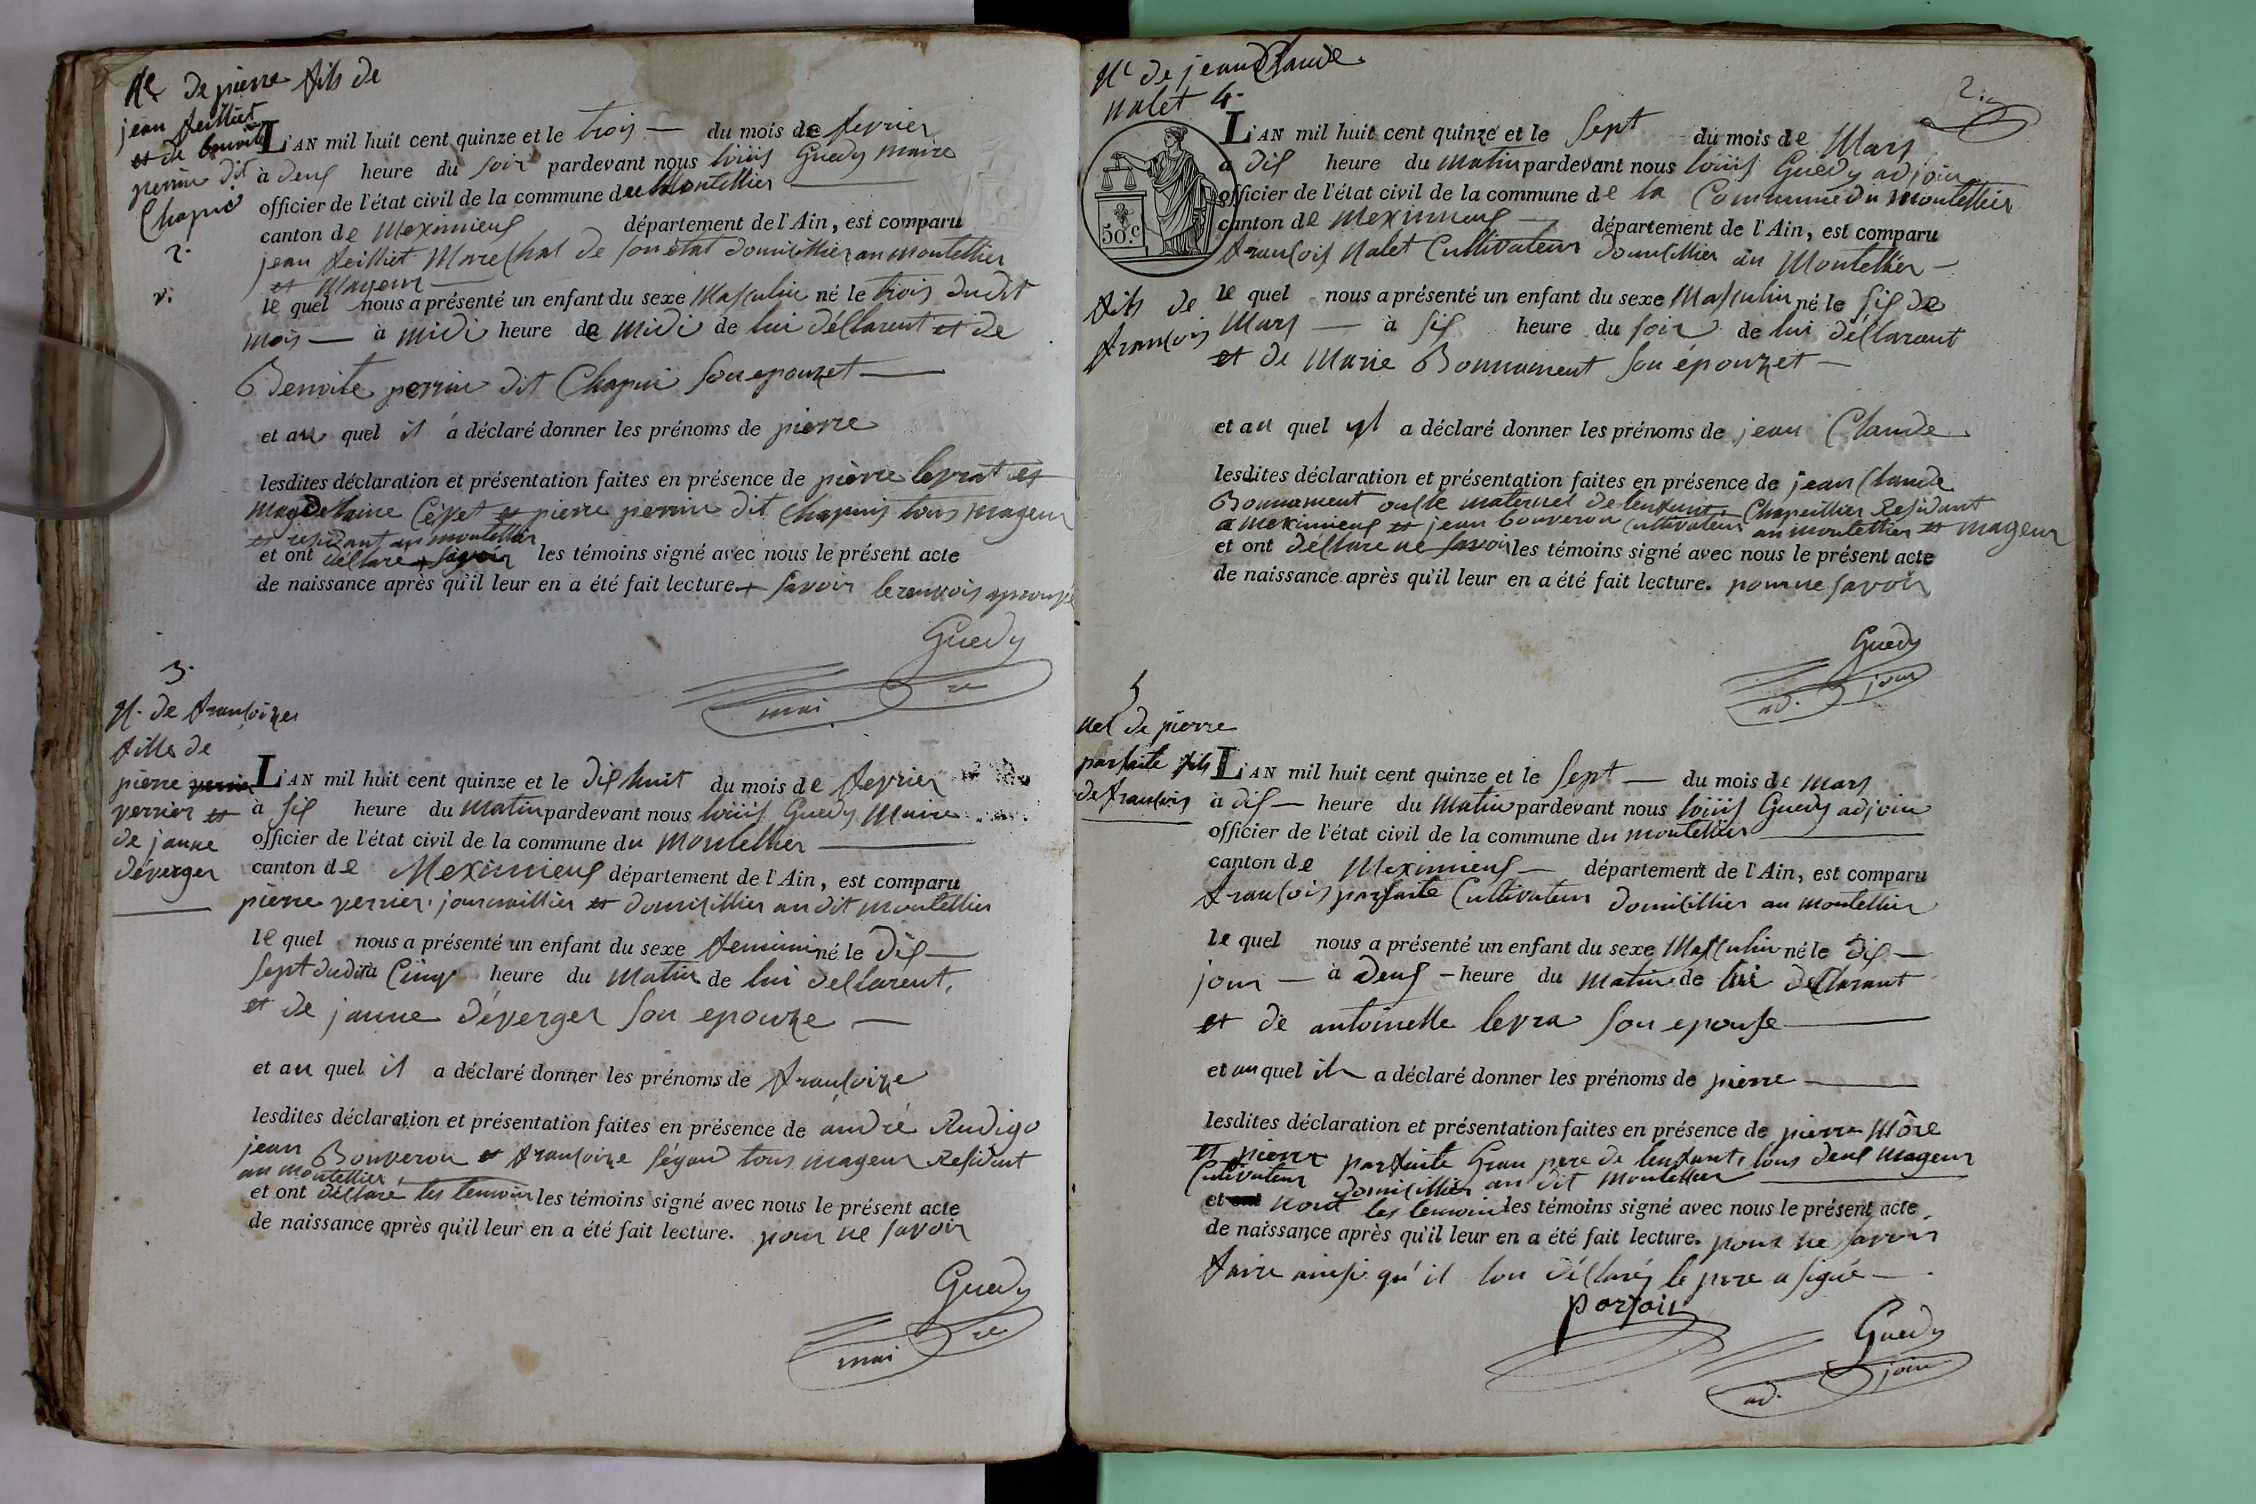 Ne de pierre fils de
jean feilliet
et de benoite
perrin dit
Chapui
2.
L'AN mil huit cent quinze et le trois — du mois de fevrier
à deux heure du soir pardevant nous loüis Guedy maire
officier de l'état civil de la commune du Montellier
canton de Meximieux département de l'Ain, est comparu
jean feilliet Marechal de son état domicillier au montellier
et mageur
le quel nous a présenté un enfant du sexe Masculin né le trois dudit
mois — à midi heure de midi de lui déllarent et de
Benoite perrin dit Chapui son epouzet —
et au quel il a déclaré donner les prénoms de pierre
lesdites déclaration et présentation faites en présence de pièrre levrat et
magdelaine et pierre perrin dit chapuis tous mageur
et residant au montellier
et ont déllaré + les témoins signé avec nous le présent acte
de naissance après qu'il leur en a été fait lecture + savoir le renvois aprouvé
Guedy
mai re
3.
N. de françoizes
fille de
pierre
verrier et
de janne
déverger
L'AN mil huit cent quinze et le dix huit du mois de fevrier
à six heure du matin pardevant nous loüis Guedy Maire
officier de l'état civil de la commune du montellier —
canton de Meximieux département de l'Ain, est comparu
pierre verrier journallier et domicillier au dit montellier
le quel nous a présenté un enfant du sexe feminin né le dix —
sept dudit à cinq heure du matin de lui dellarent,
et de janne déverger son epouze —
et au quel il a déclaré donner les prénoms de françoize
lesdites déclaration et présentation faites en présence de andré Rudigo
jean Bouveron et françoize ségaud tous mageur Residant
au montellier
et ont déllaré les temoin les témoins signé avec nous le présent acte
de naissance après qu'il leur en a été fait lecture. pour ne savoir
Guedy
mai re
Ne de jean Claude
nalet 4.
2.
50.c
fils de
françois
L'AN mil huit cent quinze et le sept du mois de Mars
à dix heure du matin pardevant nous loüis Guedy adjoin
officier de l'état civil de la commune de la Commune du montellier
canton de Meximieux — département de l'Ain, est comparu
françois Nalet Cultivateur domicillier au Montellier —
le quel nous a présenté un enfant du sexe Masculin né le six de
Mars — à six heure du soir de lui déllarant
et de Marie Bonnament son épouzet —
et au quel yl a déclaré donner les prénoms de jean Claude
lesdites déclaration et présentation faites en présence de jean Claude
Bonnament onkle maternel de lenfant, Chapeillier Residant
a meximieux et jean bouveron cultivateur au montellier et mageur
et ont déllare ne savoir les témoins signé avec nous le présent acte
de naissance après qu'il leur en a été fait lecture. pour ne savoir
Guedy
ad. join
5
Ne de pierre
parfaite fils
de françois
L'AN mil huit cent quinze et le sept — du mois de mars
à dix — heure du Matin pardevant nous loüis Guedy adjoin
officier de l'état civil de la commune du montellier —
canton de Meximieux — département de l'Ain, est comparu
françois parfaite Cultivateur domicillier au montellier
le quel nous a présenté un enfant du sexe Masculin né le dix —
jour — à deux — heure du matin de lui dellarant
et de antoinette levra son epouse —
et au quel il a déclaré donner les prénoms de pierre —
lesdites déclaration et présentation faites en présence de pierre môre
et pierre parfaite Gran pere de lenfant, tous deux mageur
Cultivateur domicillier au dit montellier —
et nont les temoin les témoins signé avec nous le présent acte
de naissance après qu'il leur en a été fait lecture. pour ne savoir
faire ainsi qu'il lon déllaré, le pere a signé —
parfait
Guedy
ad. join